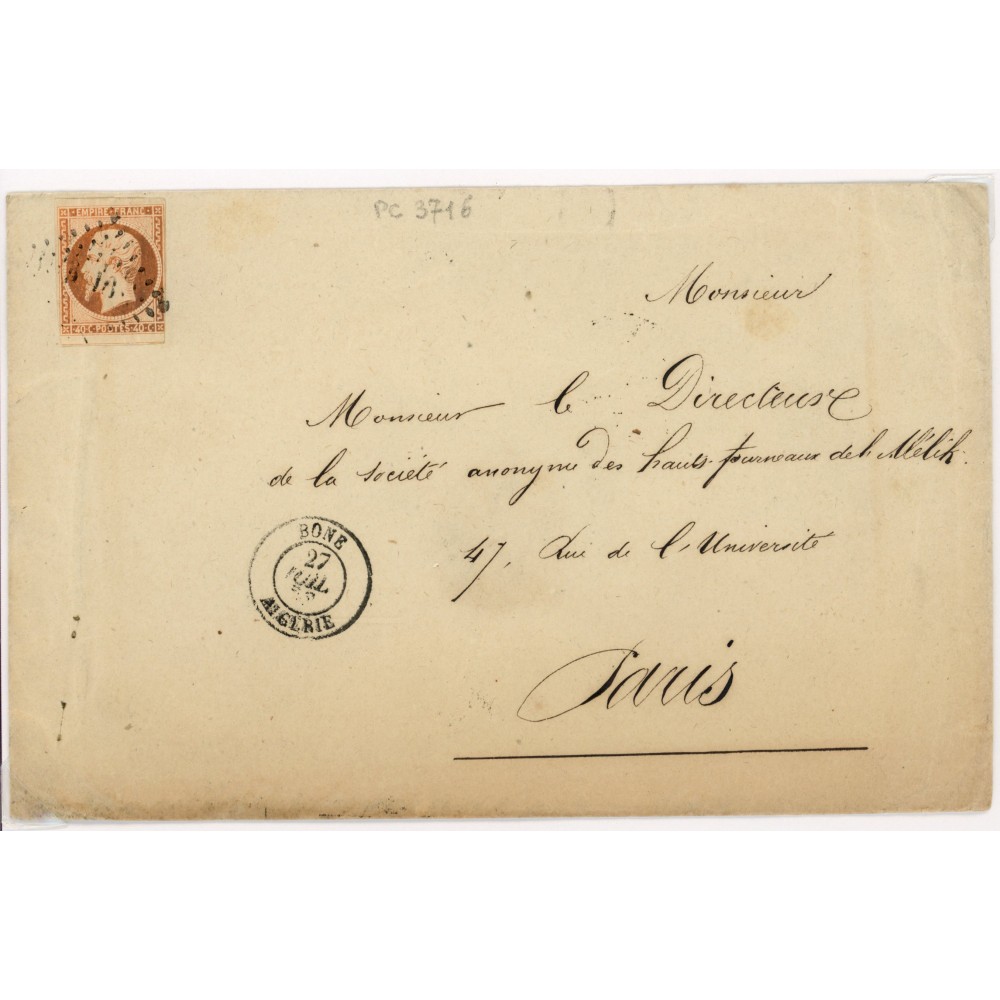 PC 3716
EMPIRE FRANC
16
40 C POSTES 40 C
Monsieur
Monsieur le Directeur
de la Société anonyme des hauts-fourneaux de l'Alélik.
47, Rue de l'Université
Paris
BONE
27
JUIL.
ALGERIE